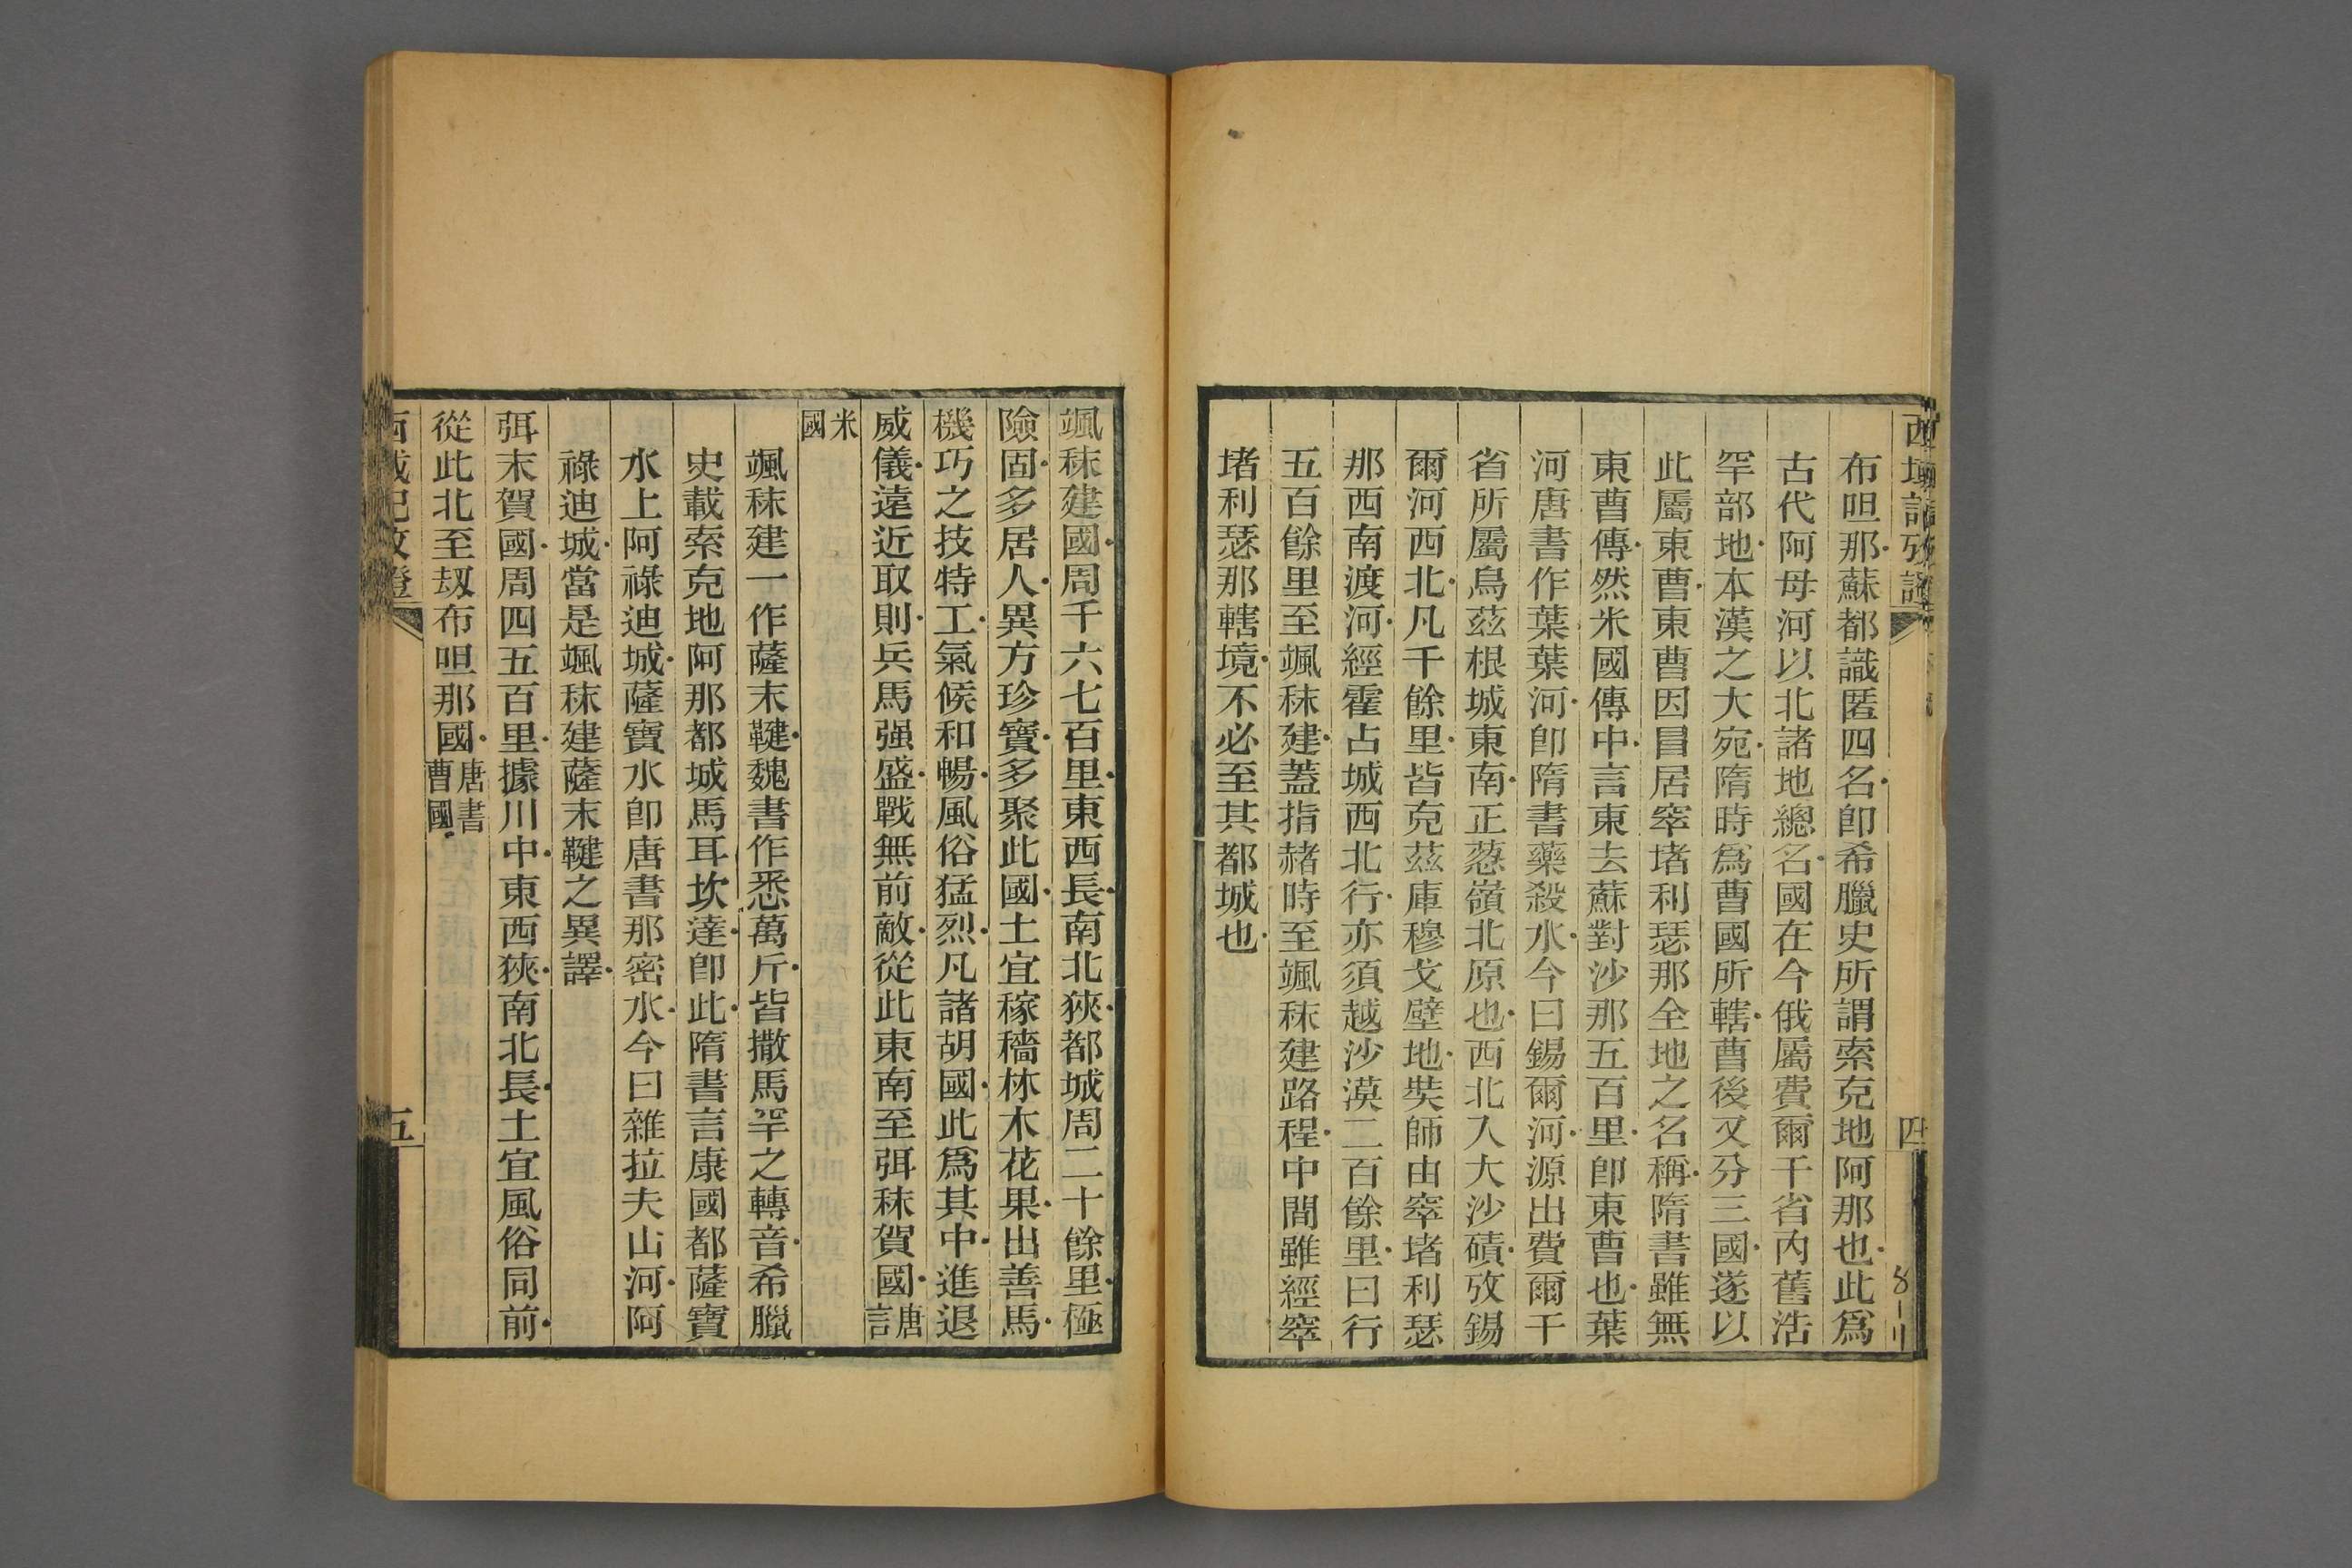 西域記攷證
四
布呾那蘇都識匿四名卽希臘史所謂索克地阿那也此爲
古代阿母河以北諸地總名國在今俄屬費爾干省內舊浩
罕部地本漢之大宛隋時爲曹國所轄曹後又分三國遂以
此屬東曹東曹因冒居窣堵利瑟那全地之名稱隋書雖無
東曹傳然米國傳中言東去蘇對沙那五百里卽東曹也葉
河唐書作葉葉河卽隋書藥殺水今曰錫爾河源出費爾干
省所屬烏茲根城東南正葱嶺北原也西北入大沙磧攷錫
爾河西北凡千餘里皆克茲庫穆戈壁地奘師由窣堵利瑟
那西南渡河經霍占城西北行亦須越沙漠二百餘里曰行
五百餘里至颯秣建蓋指赭時至颯秣建路程中間雖經窣
堵利瑟那轄境不必至其都城也
颯秣建國周千六七百里東西長南北狹都城周二十餘里極
險固多居人異方珍寶多聚此國土宜稼穡林木花果出善馬
機巧之技特工氣候和暢風俗猛烈凡諸胡國此爲其中進退
威儀遠近取則兵馬强盛戰無前敵從此東南至弭秣賀國唐言
米國
颯秣建一作薩末鞬魏書作悉萬斤皆撒馬罕之轉音希臘
史載索克地阿那都城馬耳坎達卽此隋書言康國都薩寶
水上阿祿迪城薩寶水卽唐書那密水今曰雜拉夫山河阿
祿迪城當是颯秣建薩末鞬之異譯
弭末賀國周四五百里據川中東西狹南北長土宜風俗同前
從此北至刼布呾那國唐書曹國
西域記攷證
五